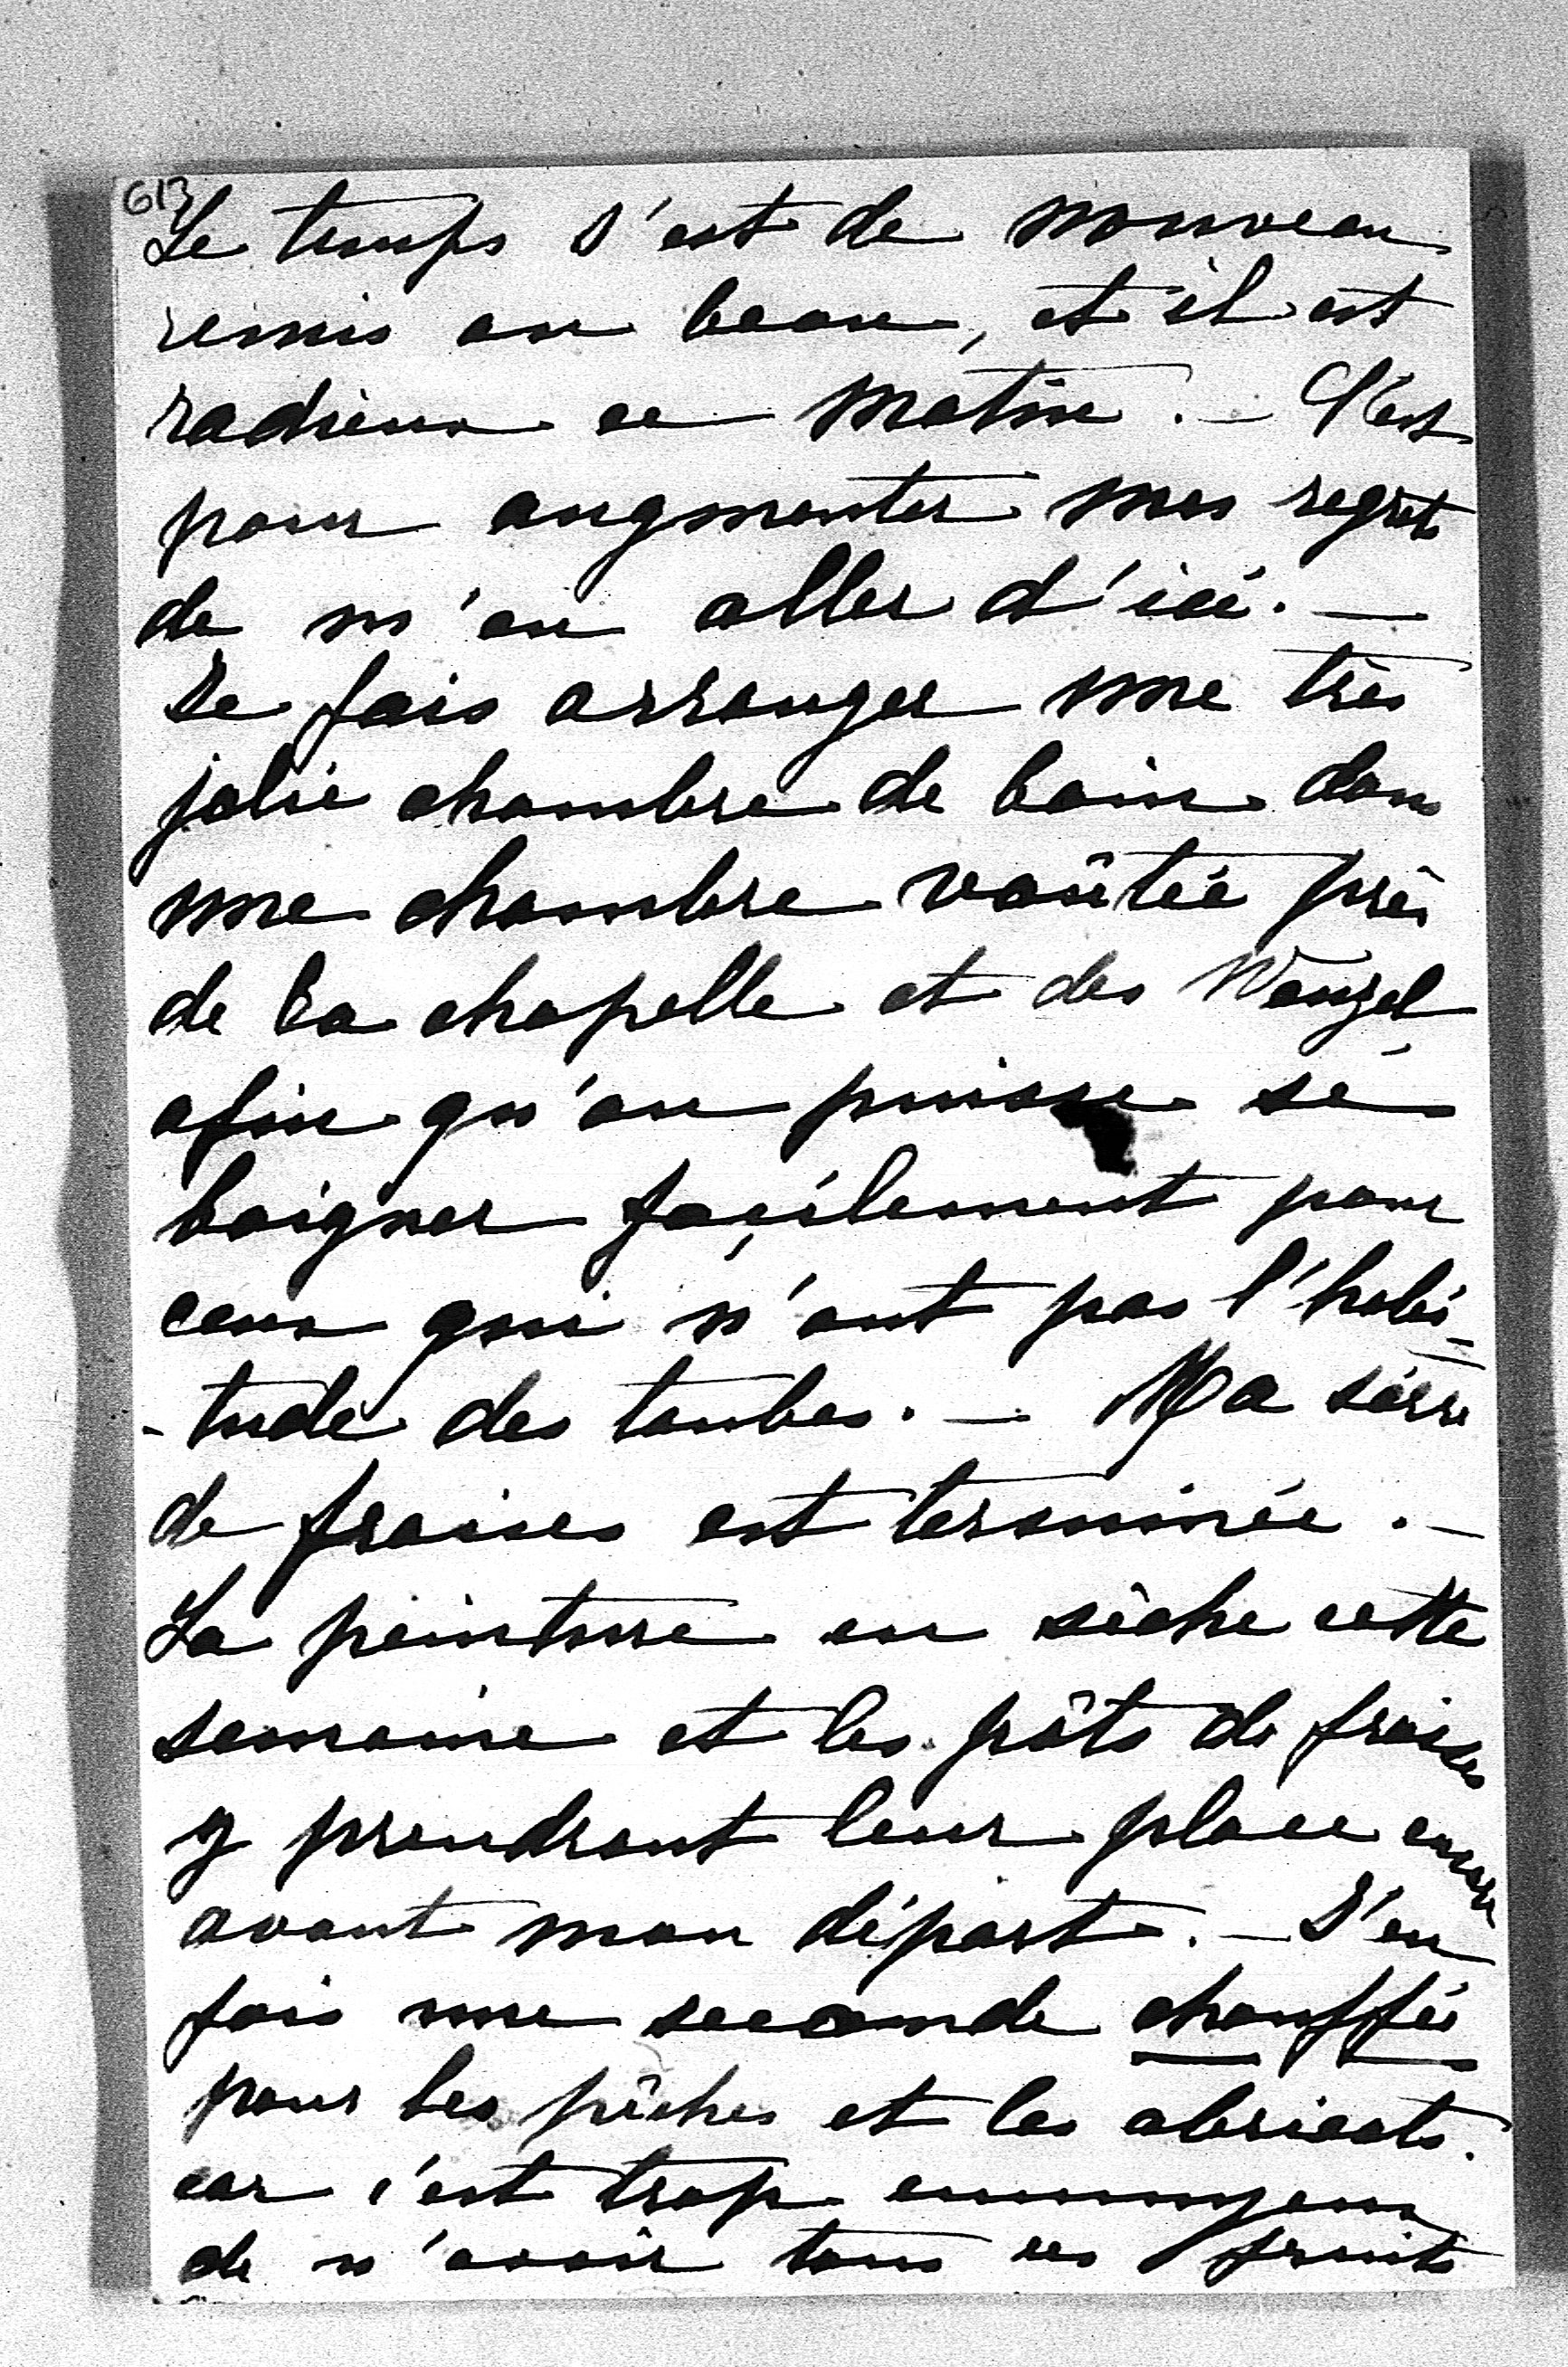 613
Le temps s'est de nouveau
remis au beau, et il est
radieux ce matin. — C'est
pour augmenter mes regrets
de m'en aller d'ici. —
Je fais arranger une très
jolie chambre de bain dans
une chambre voûtée près
de la chapelle et des Wenzel
afin qu'on puisse se
baigner façilement pour
ceux qui n'ont pas l'habi-
-tude des toubes. — Ma serre
de fraises est terminée. —
La peinture en sèche cette
semaine et les pôts de fraises
y prendront leur place encore
avant mon départ. — J'en
fais une seconde chauffée
pour les pêches et les abricots.
car c'est trop ennuyeux
de n'avoir tous ces fruits